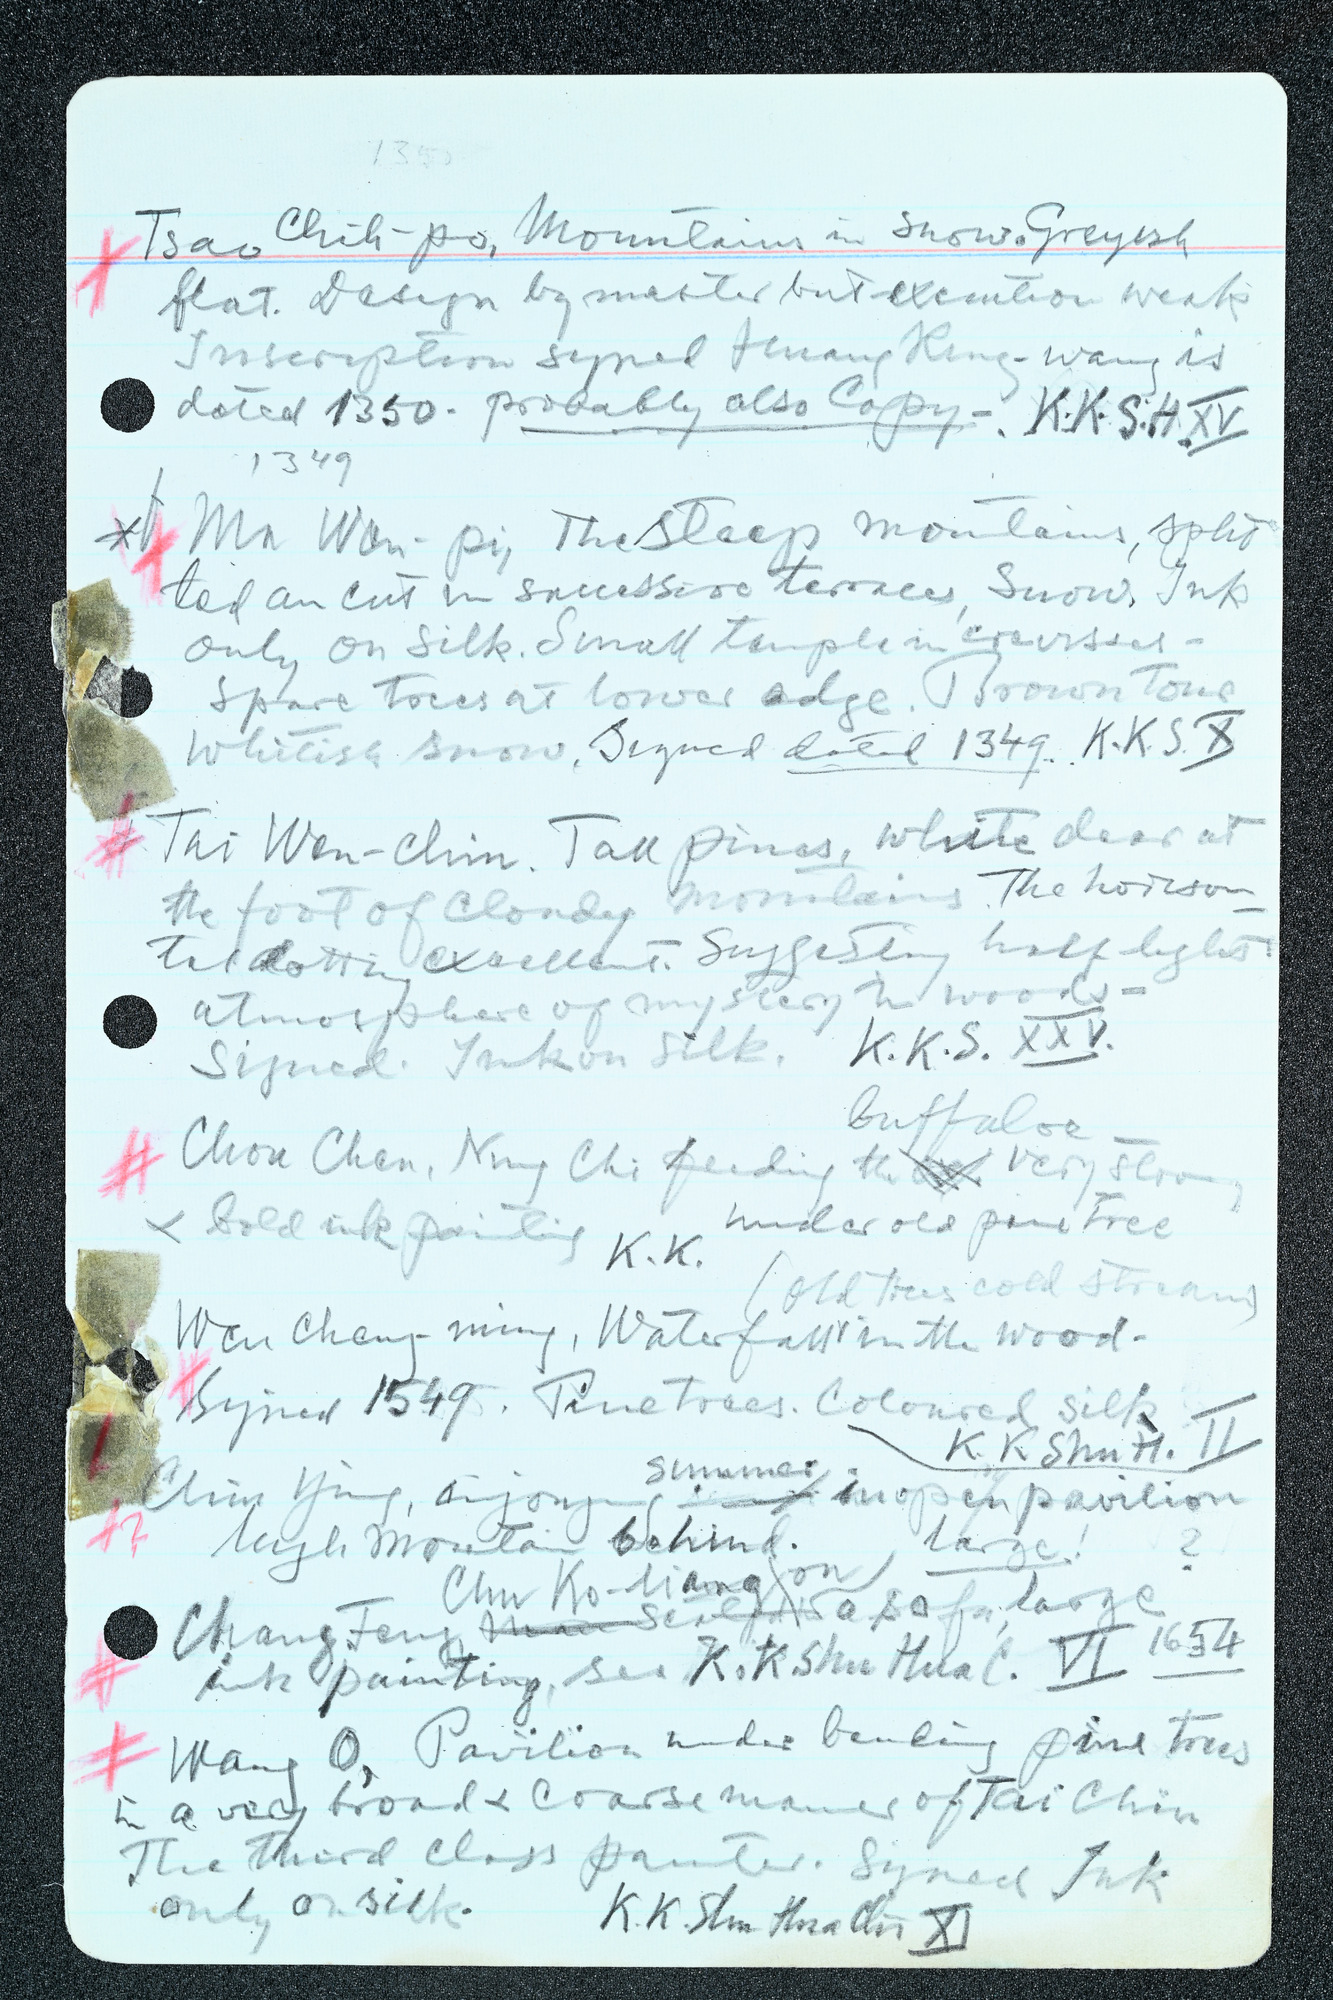 1350
Tsao Chih-po, Mountains in snow. Greyish
flat. Design by master but execution weak
Inscription signed Huang Kung-wang is
dated 1350. probably also Copy -. K.K.S.H. XV
1349
x Ma Wen-pi, The steep mountains, split
ted an cut in successive terraces, Snow. Ink
only on Silk. Small temple in crevisses -
Spare trees at lower edge. Brown tone
Whitish snow. Signed dated 1349. K.K.S. X
# Tai Wen-chin. Tall pines, white deer at
the foot of cloudy mountains. The horison-
tal dotting excellent. Suggesting half-light
atmosphere of mystery in woods -
Signed. Ink on Silk. K.K.S. XXV.
buffaloe
# Chou Chen, Ning Chi feeding the very strong
& bold ink painting under old pine tree
K.K.
(old trees cold stream)
Wen Cheng-ming, Waterfall in the wood-
# Signed 1549. Pine trees. Coloured silk
K.K Shu H. II
summer
Chiu Ying, enjoying in open pavilion
#? high mountain behind. large! ?
Chu Ko-liang on
Chang Feng, a sofa, large
# ink painting, see K.K Shu Hua C. VI 1654
# Wang O, Pavilion under bending pine trees
in a very broad & coarse manner of Tai Chin
The third class painter. Signed Ink
only on silk. K.K. Shu Hua Chi XI